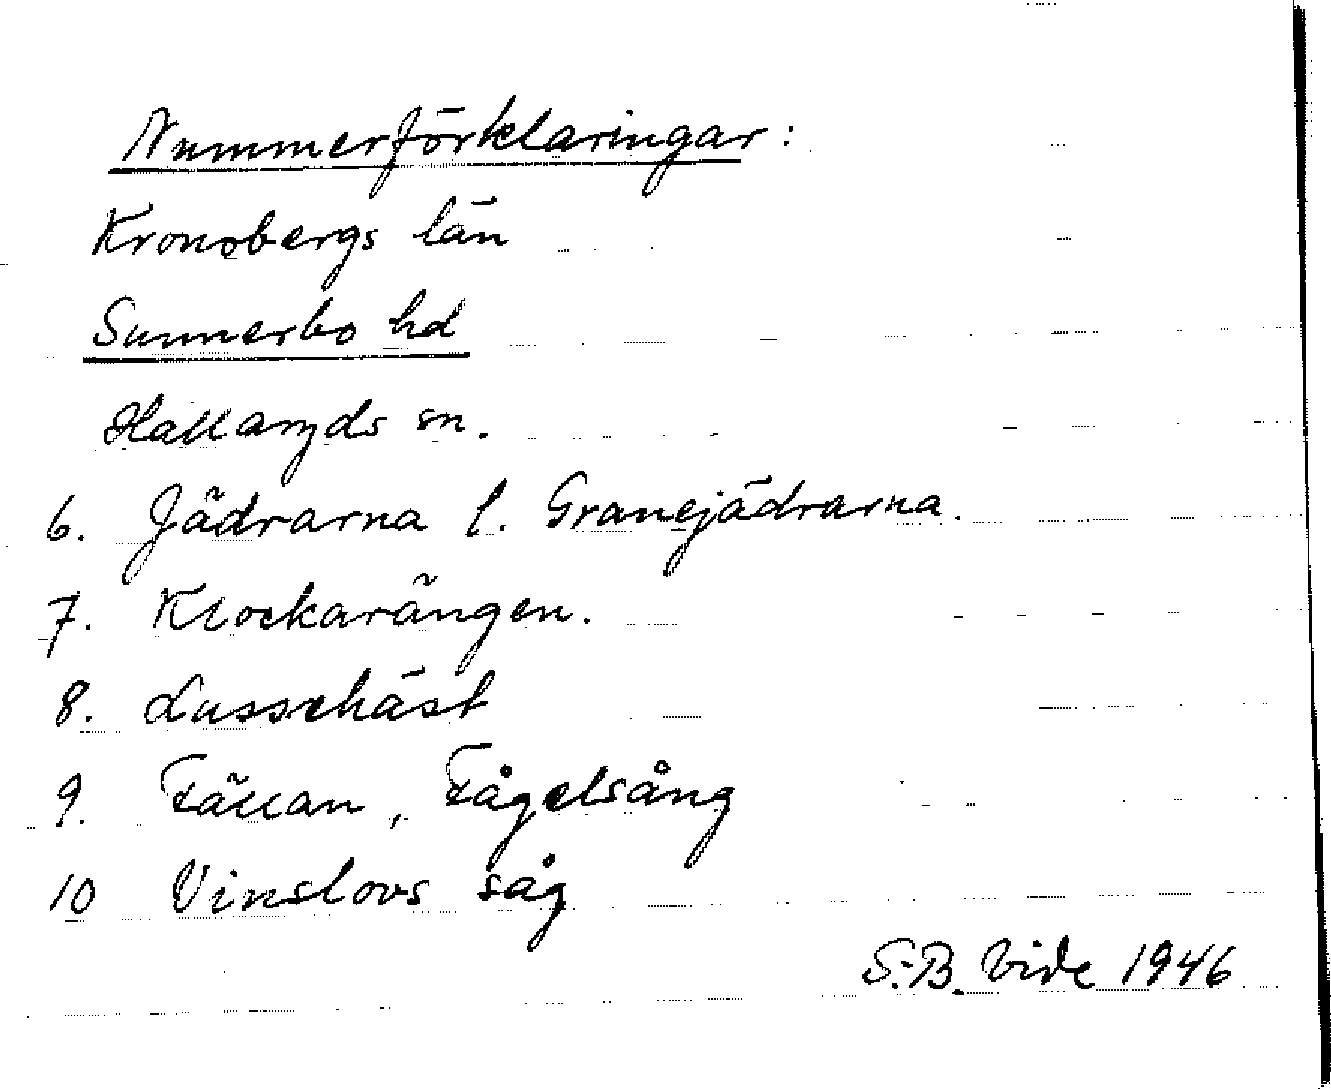 Nummerförklaringar:
Kronobergs län
Sunnerbo hd
Hallaryds sn.
6. Jädrarna l. Granejädrarna.
7. Klockarängen.
8. Lussehäst
9. Fällan, Fågelsång
10 Vinslovs såg
S.-B. Vide 1946